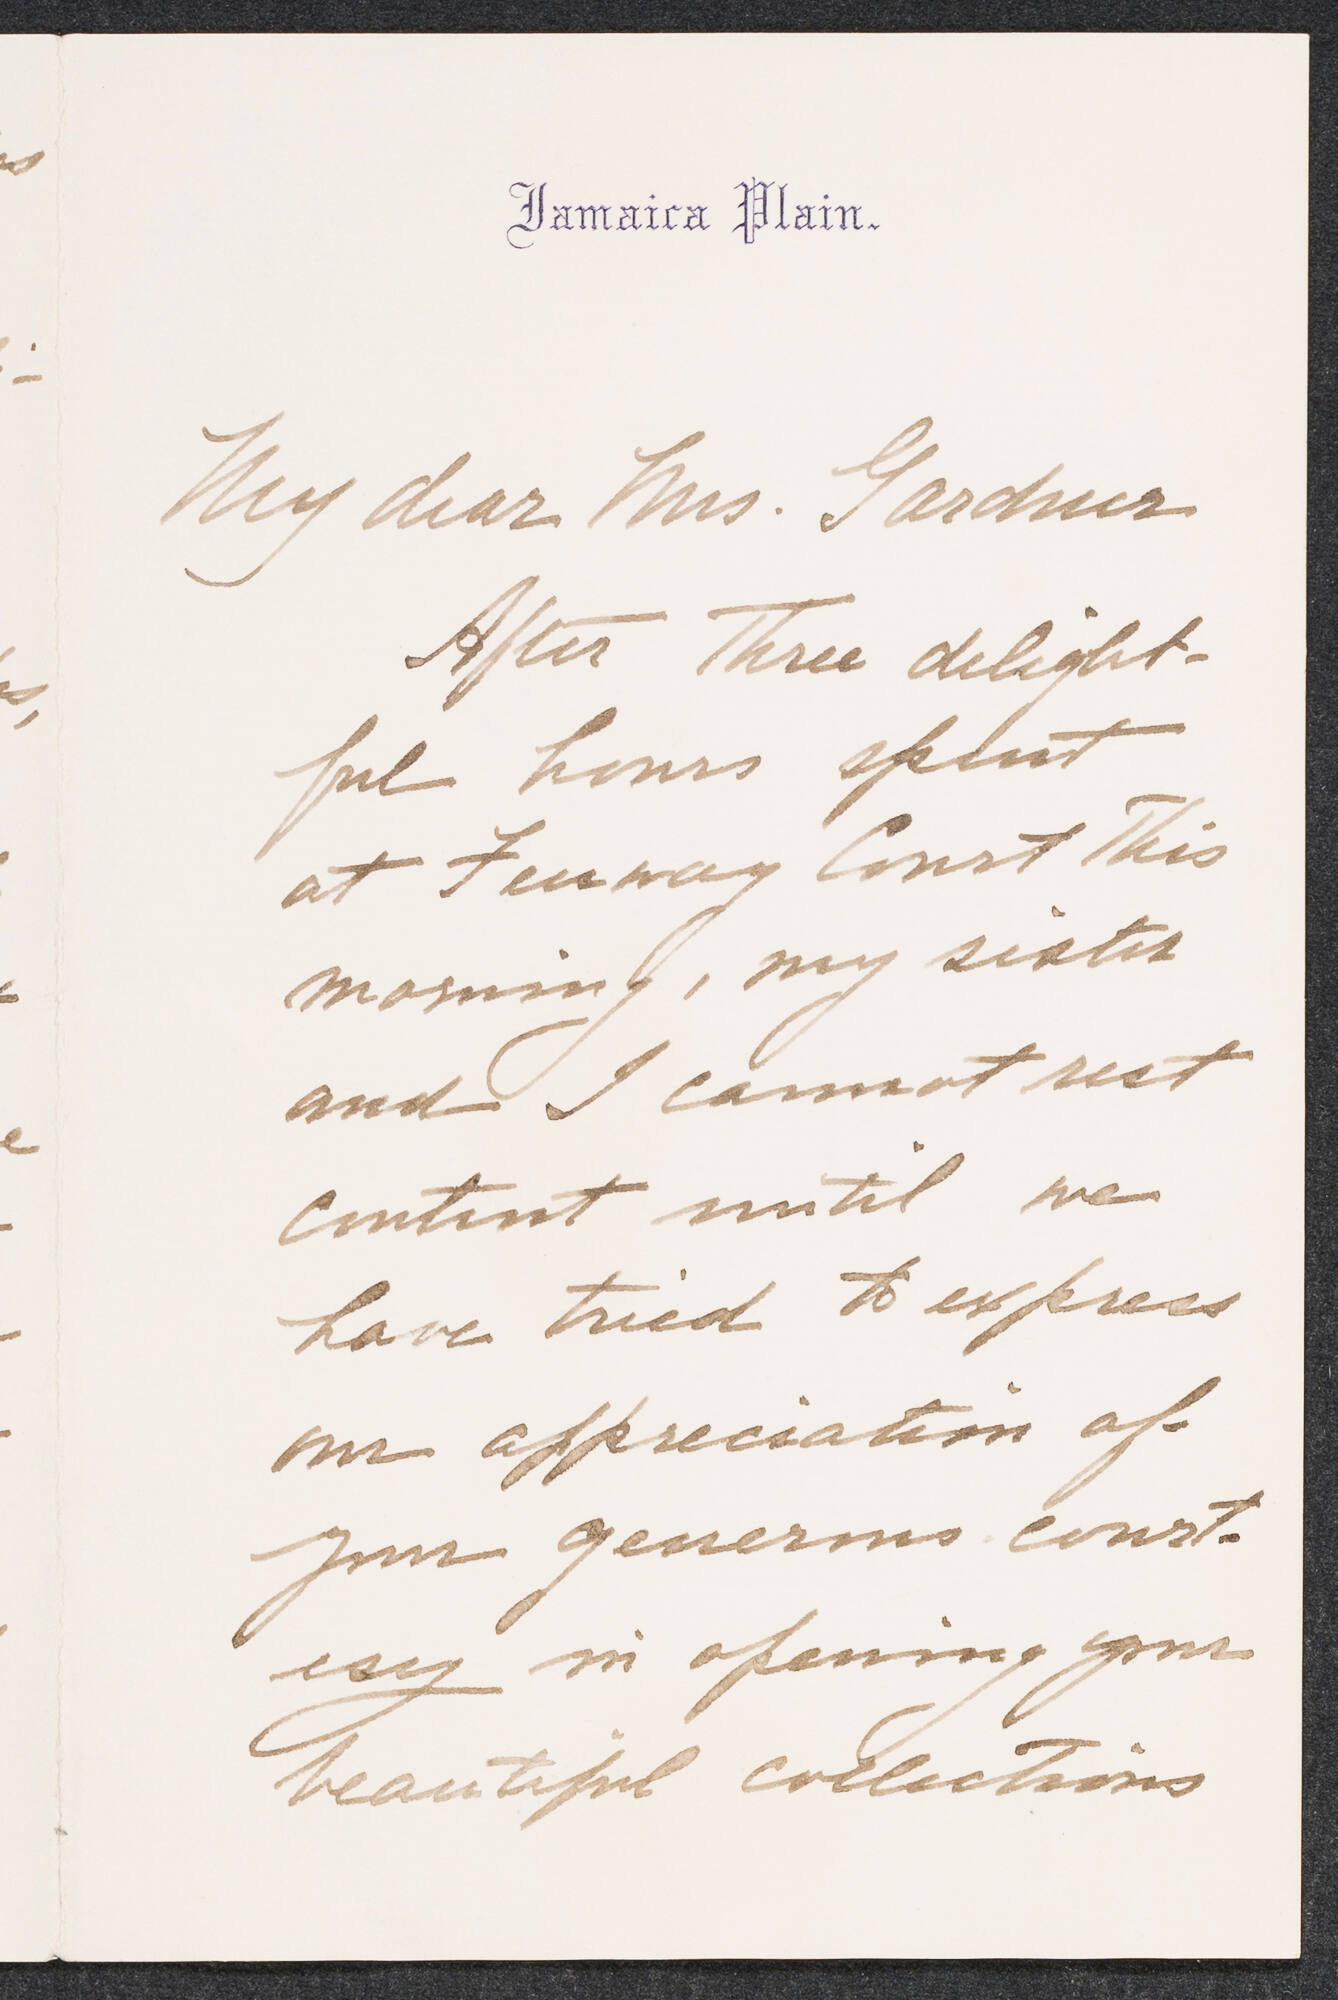 Jamaica Plain.
My dear Mrs. Gardner
After three delight-
ful hours spent
at Fenway Court this
morning, my sister
and I cannot rest
content until we
have tried to express
our appreciation of
your generous court-
esy in opening your
beautiful collections